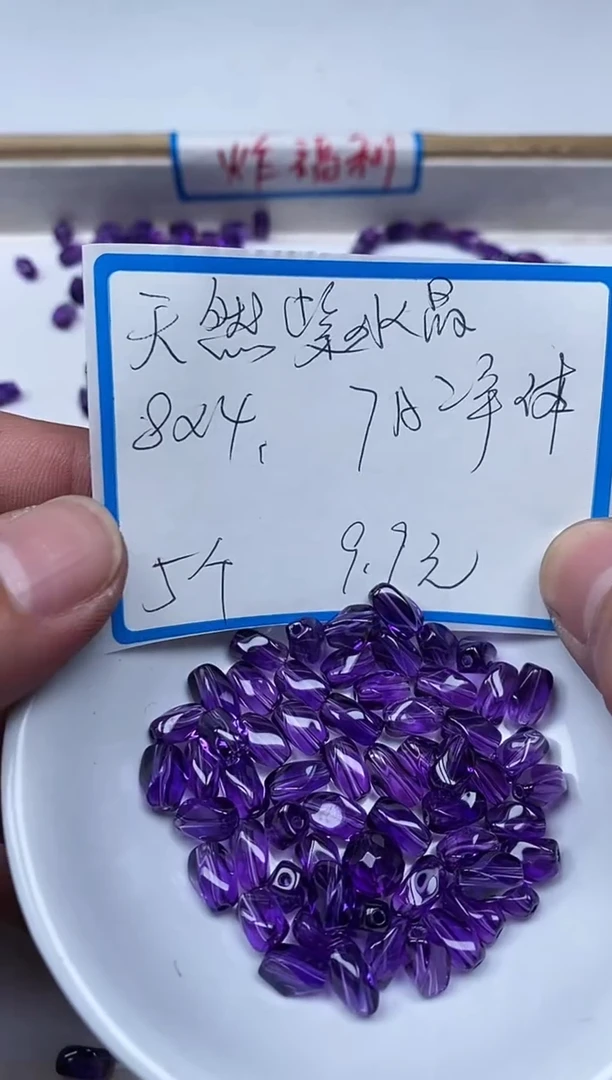 炸福利
天然紫水晶
8×4, 7A净体
5个 9.9元